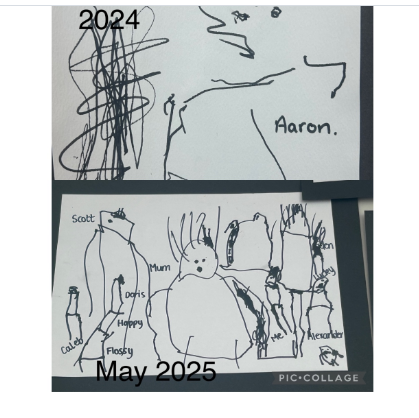 2024
Aaron.
Scott
Mum
Doris
Happy
Caleb
Flossy
Me
Alexander
May 2025
PIC•COLLAGE